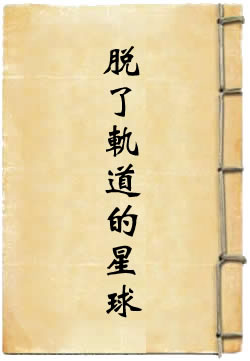 脫了軌道的星球